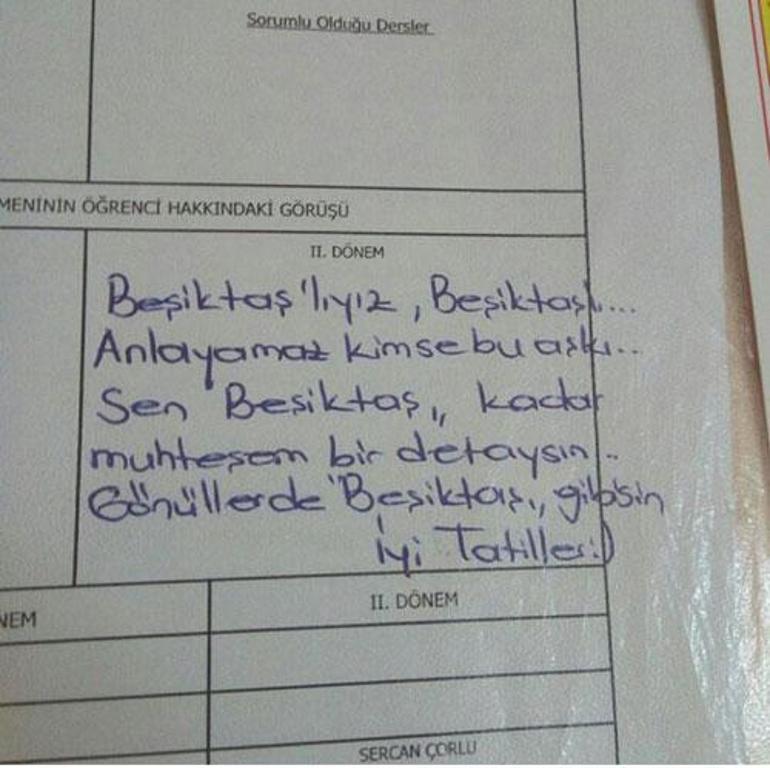 Sorumlu Olduğu Dersler
MENİNİN ÖĞRENCİ HAKKINDAKİ GÖRÜŞÜ
II. DÖNEM
Beşiktaş'lıyız, Beşiktaşlı...
Anlayamaz kimse bu aşkı...
Sen "Beşiktaş,, kadar
muhteşem bir detaysın...
Gönüllerde "Beşiktaş,, gibisin
İyi Tatiller:)
NEM
II. DÖNEM
SERCAN ÇORLU